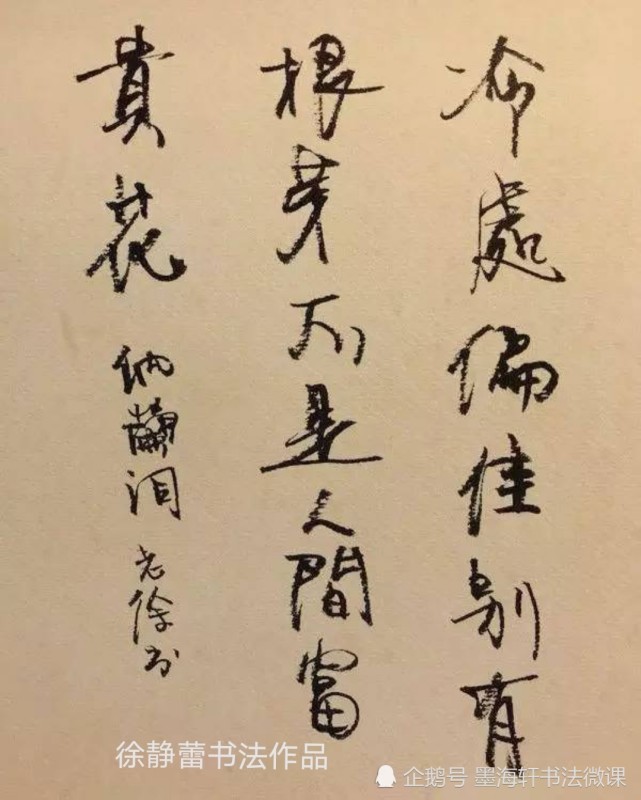 冷處偏佳别有
根芽不是人間富
貴花
納蘭詞
老徐書
徐静蕾书法作品
企鹅号 墨海轩书法微课